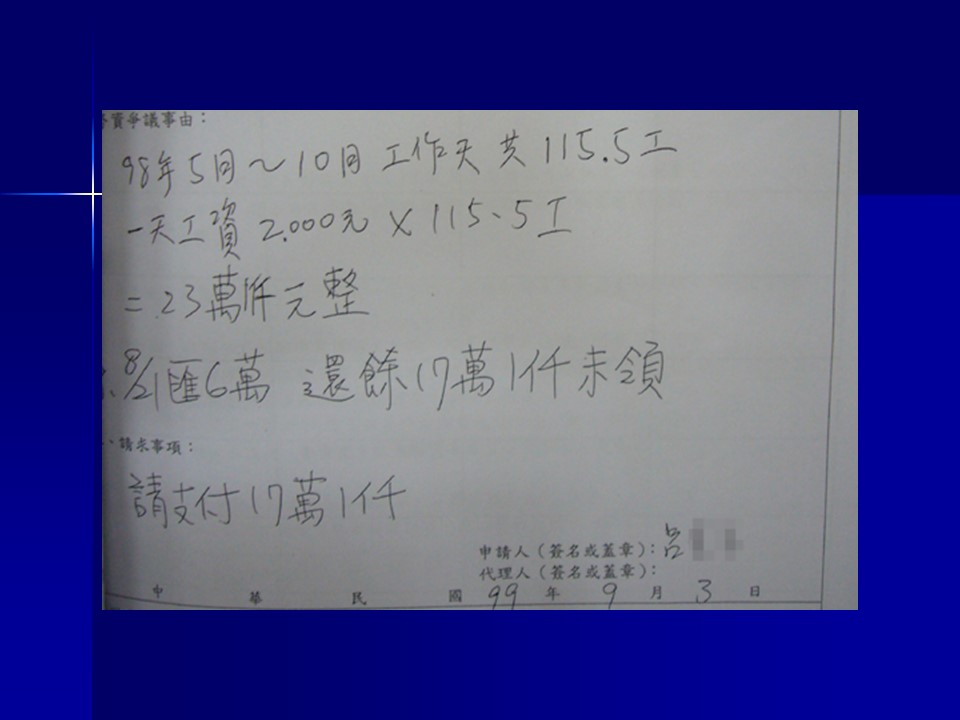 勞資爭議事由：
98年5月～10月 工作天 共 115.5工
一天工資 2.000元 × 115.5工
= 23萬1仟元整
8/21匯6萬 還餘17萬1仟未領
、請求事項：
請支付17萬1仟
申請人（簽名或蓋章）：呂
代理人（簽名或蓋章）：
中 華 民 國 99 年 9 月 3 日